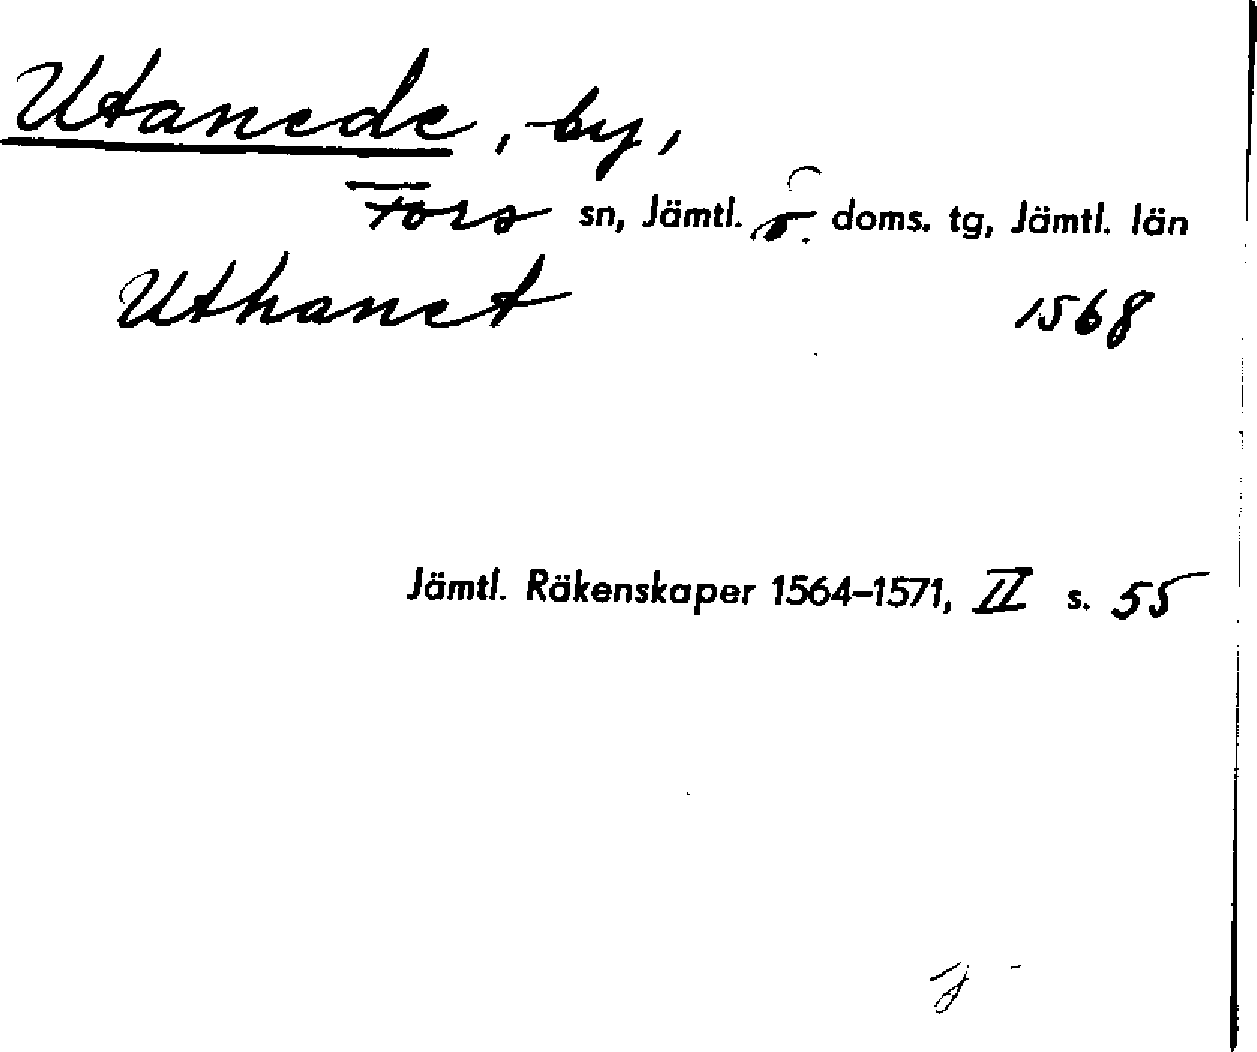 Utanede, by,
Fors sn, Jämtl. ö. doms. tg, Jämtl. län
Uthanet 1568
Jämtl. Räkenskaper 1564–1571, II s. 55